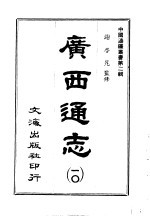 中國邊疆叢書第二輯
謝啓昆監修
廣西通志
(一〇)
文海出版社印行